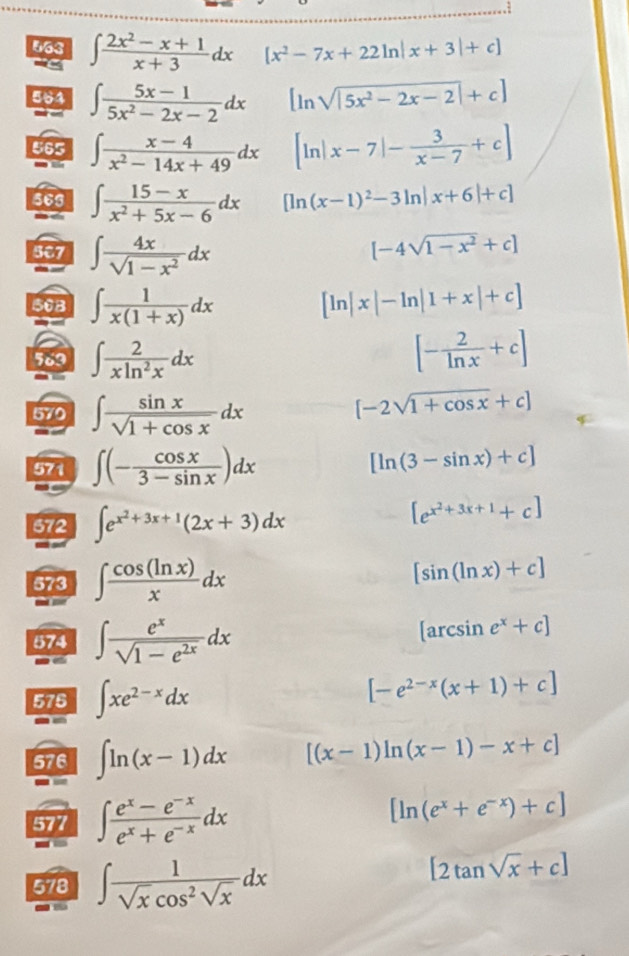 563 ∫ (2x² − x + 1)/(x + 3) dx [x² − 7x + 22 ln|x + 3| + c]
564 ∫ (5x − 1)/(5x² − 2x − 2) dx [ln √|5x² − 2x − 2| + c]
565 ∫ (x − 4)/(x² − 14x + 49) dx [ln|x − 7| − 3/(x − 7) + c]
566 ∫ (15 − x)/(x² + 5x − 6) dx [ln(x − 1)² − 3 ln|x + 6| + c]
567 ∫ 4x/√(1 − x²) dx [−4√(1 − x²) + c]
568 ∫ 1/(x(1 + x)) dx [ln|x| − ln|1 + x| + c]
569 ∫ 2/(x ln² x) dx [−2/(ln x) + c]
570 ∫ sin x/√(1 + cos x) dx [−2√(1 + cos x) + c]
571 ∫ (−cos x/(3 − sin x)) dx [ln(3 − sin x) + c]
572 ∫ e^(x² + 3x + 1) (2x + 3) dx [e^(x² + 3x + 1) + c]
573 ∫ cos(ln x)/x dx [sin(ln x) + c]
574 ∫ e^x/√(1 − e^(2x)) dx [arcsin e^x + c]
575 ∫ xe^(2 − x) dx [−e^(2 − x)(x + 1) + c]
576 ∫ ln(x − 1) dx [(x − 1) ln(x − 1) − x + c]
577 ∫ (e^x − e^(−x))/(e^x + e^(−x)) dx [ln(e^x + e^(−x)) + c]
578 ∫ 1/(√x cos² √x) dx [2 tan √x + c]